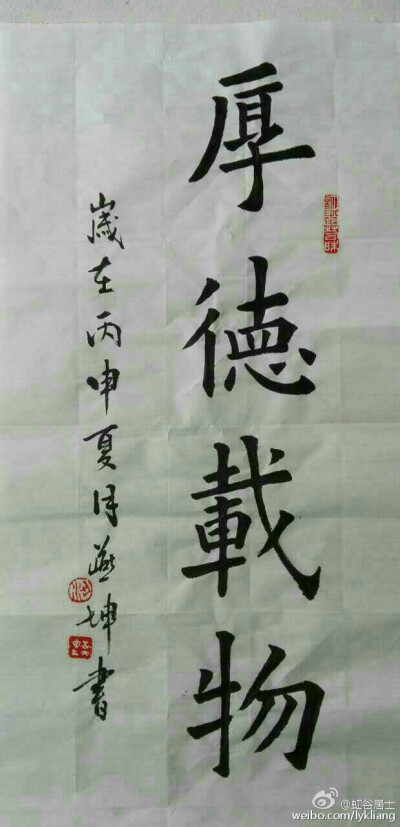 厚德載物
歲在丙申夏月燕坤書
@虹谷居士
weibo.com/lykliang